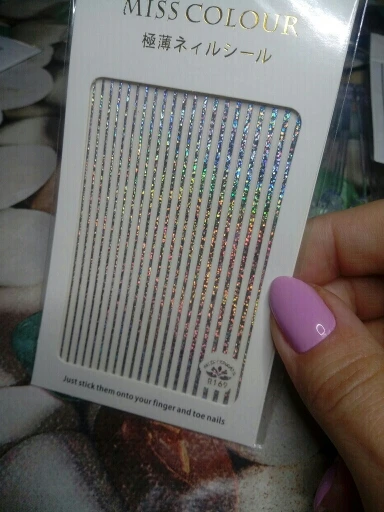 MISS COLOUR
極薄ネイルシール
R169
Just stick them onto your finger and toe nails